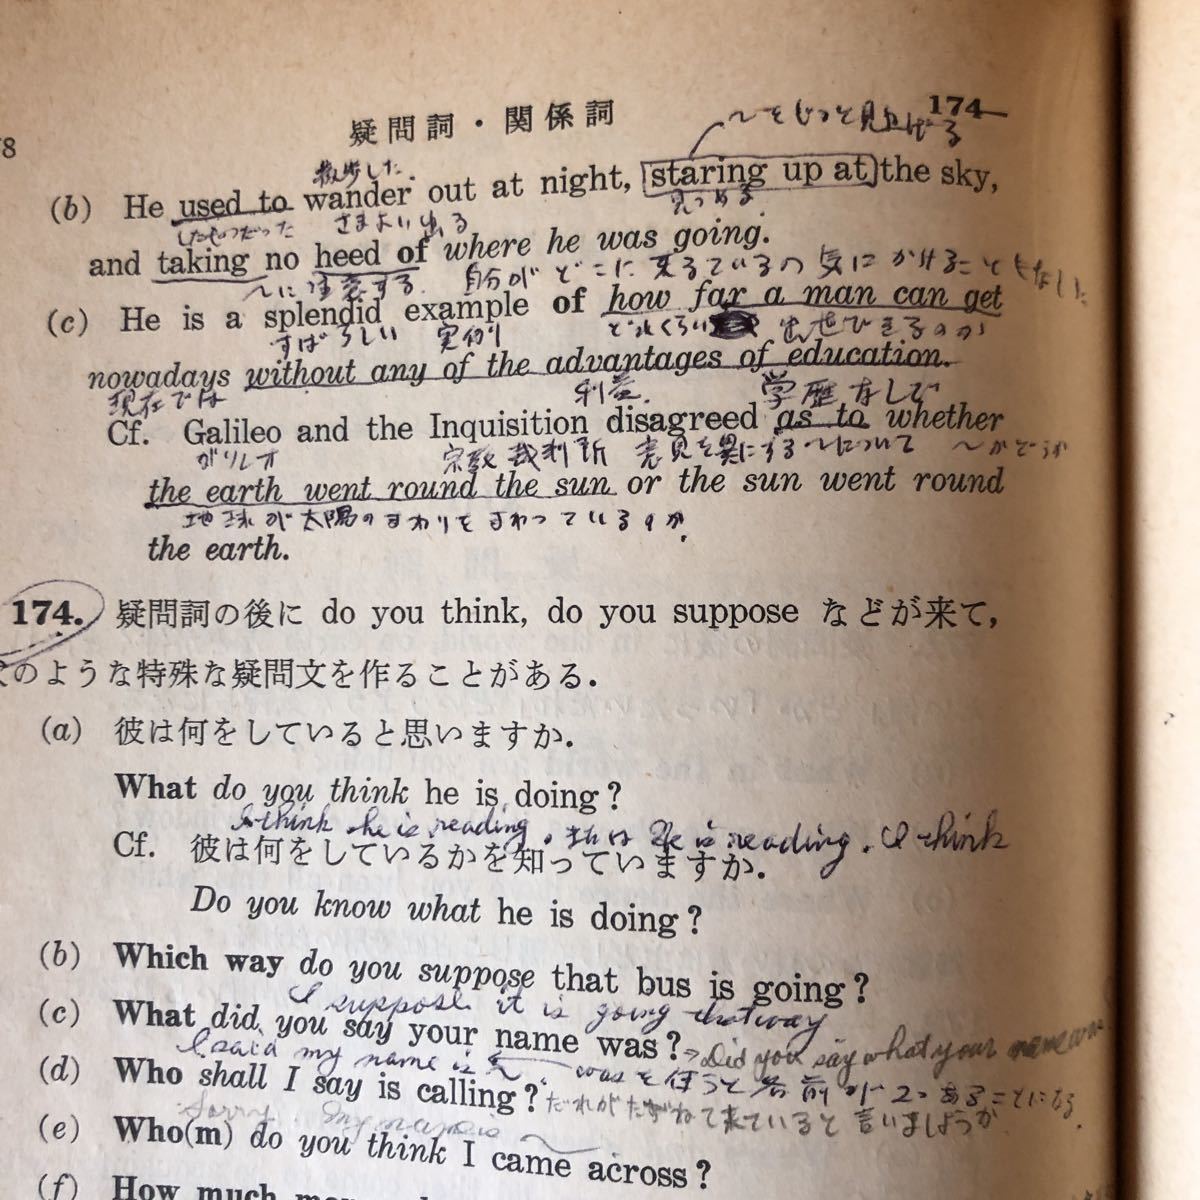 疑問詞・関係詞
174
~をじっと見上げる
散歩した.
(b) He used to wander out at night, staring up at the sky,
したものだった さまよい出る 見つめる
and taking no heed of where he was going.
~に注意する. 自分がどこに来ているの気にかけることもなし
(c) He is a splendid example of how far a man can get
すばらしい 実例 どれくらい 出世できるのか
nowadays without any of the advantages of education.
現在では 利益. 学歴なしで
Cf. Galileo and the Inquisition disagreed as to whether
ガリレオ 宗教裁判所 意見を異にする ~について ~かどうか
the earth went round the sun or the sun went round
地球が太陽のまわりをまわっているのか.
the earth.
174. 疑問詞の後に do you think, do you suppose などが来て,
のような特殊な疑問文を作ることがある.
(a) 彼は何をしていると思いますか.
What do you think he is doing?
I think he is reading. 又は He is reading. I think
Cf. 彼は何をしているかを知っていますか.
Do you know what he is doing?
(b) Which way do you suppose that bus is going?
I suppose it is going that way
(c) What did you say your name was? → Did you say what your name was
I said my name is wasを使うと名前が2つあることになる
(d) Who shall I say is calling? だれがたずねて来ていると言いましょうか
Sorry. My name is ~
(e) Who(m) do you think I came across?
(f) How much